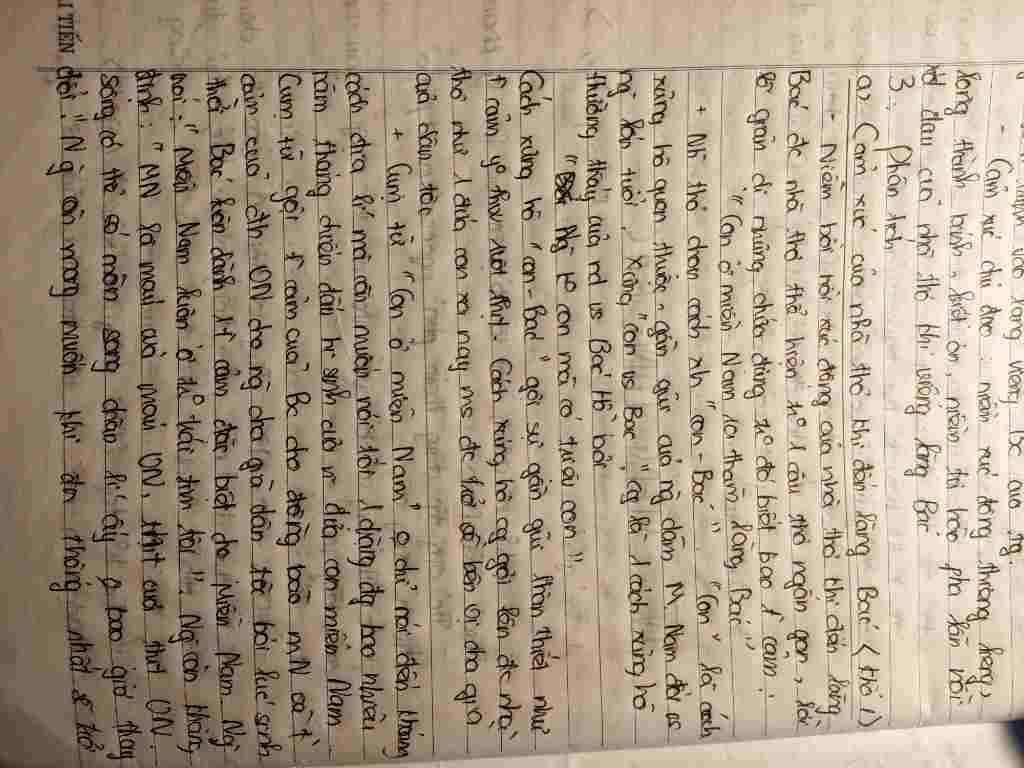 vào lăng viếng Bác của tg
- Cảm xúc chủ đạo: niềm xúc động thiêng liêng,
lòng thành kính, biết ơn, niềm tự hào pha lẫn nỗi
xót đau của nhà thơ khi viếng lăng Bác
3. Phân tích
a, Cảm xúc của nhà thơ khi đến lăng Bác (khổ 1)
- Niềm bồi hồi xúc động của nhà thơ khi đến lăng
Bác đc nhà thơ thể hiện từ 1 câu thơ ngắn gọn, lời
lẽ giản dị nhưng chứa đựng từ đó biết bao t cảm:
"Con ở miền Nam ra thăm lăng Bác"
+ Nh thơ chọn cách xh "con - Bác". "Con" là cách
xưng hô quen thuộc, gần gũi của ng dân M. Nam đối vs
ng lớn tuổi, xưng "con vs Bác" cg là 1 cách xưng hô
thường thấy của nd vs Bác Hồ bởi
"Ng k con mà có triệu con".
Cách xưng hô "con - Bác" gợi sự gần gũi thân thiết như
t cảm ruột thịt. Cách xưng hô cg gợi lên đc nhà
thơ như 1 đứa con xa nay ms đc trở về bên vị cha già
của dân tộc
+ Cụm từ "Con ở miền Nam" k chỉ nói đến khoảng
cách địa lí mà còn muốn nói tới 1 dùng đg bao nhiêu
năm tháng chiến đấu hi sinh của ng đứa con miền Nam
Cụm từ gợi t cảm của Bc cho đồng bào MN cả t
cảm của đb MN cho ng cha già dân tộc bởi lúc sinh
thời Bác luôn dành t cảm đặc biệt cho Miền Nam Ng
nói: "Miền Nam luôn ở trái tim tôi". Ng còn khẳng
định: "MN là máu của máu VN, thịt của thịt VN.
Sông có thể cạn, núi có thể mòn song chân lí ấy k bao giờ thay
đổi". Ng còn mong muốn khi đn thống nhất sẽ trở